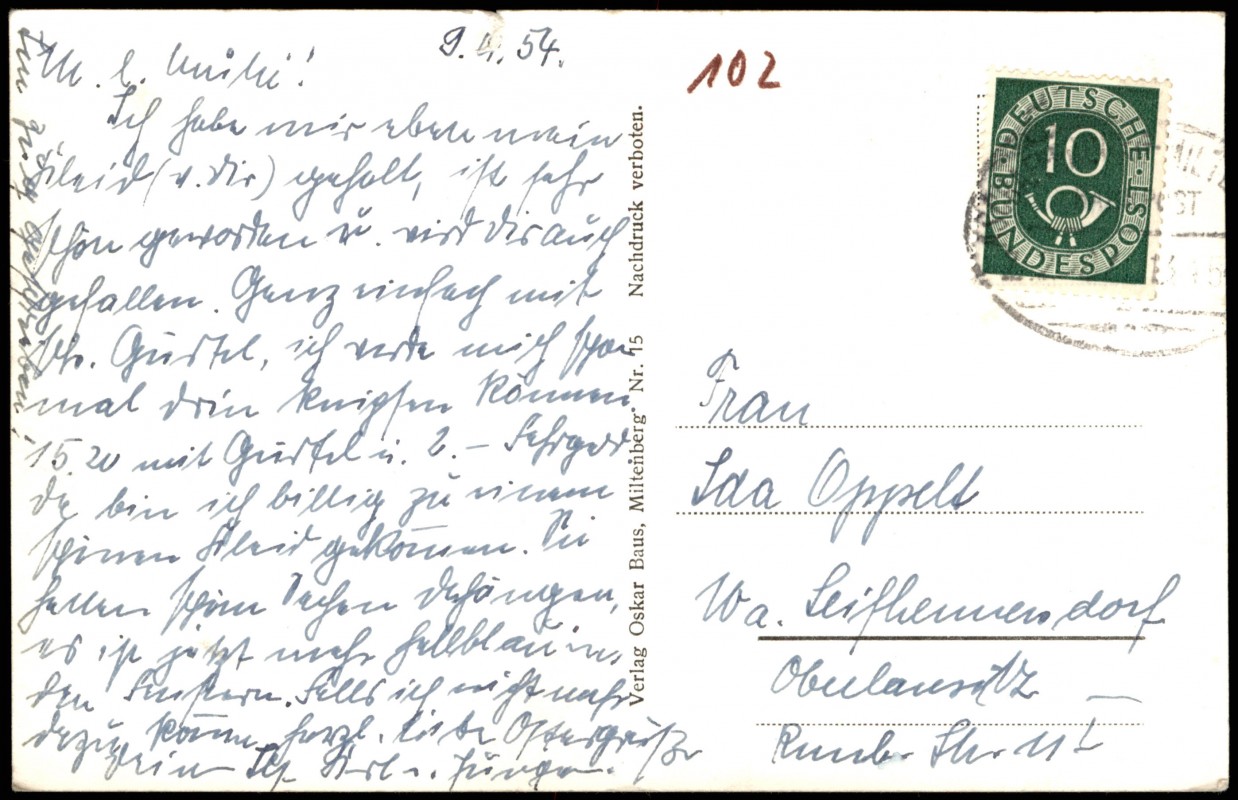 9.4.54.
M. l. Mutti!
Ich habe mir eben mein
Kleid (v. dir) geholt, ist sehr
schön geworden u. wird dir auch
gefallen. Ganz einfach mit
Gürtel, ich werde mich schon
mal drin knipsen können
15.20 mit Gürtel u. 2.– Fahrgeld
da bin ich billig zu einem
schönen Kleid gekommen. Sie
hatten schöne Sachen dahängen,
es ist jetzt mehr hellblau in
den Fenstern. Falls ich nicht mehr
dazu komme, herzl. liebe Ostergrüße
Dein u. Jürgen.
102
DEUTSCHE BUNDESPOST
10
Verlag Oskar Baus, Miltenberg Nr. 15 Nachdruck verboten.
Frau
Ida Oppelt
Wa. Seifhennersdorf
Oberlausitz
Str. 11